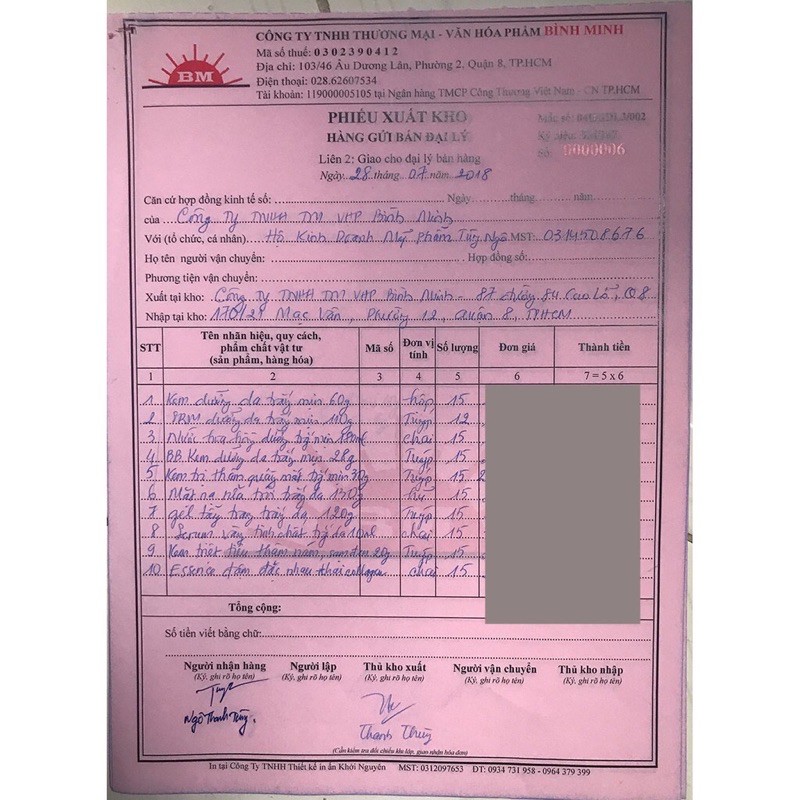 CÔNG TY TNHH THƯƠNG MẠI - VĂN HÓA PHẨM BÌNH MINH
BM
Mã số thuế: 0302390412
Địa chỉ: 103/46 Âu Dương Lân, Phường 2, Quận 8, TP.HCM
Điện thoại: 028.62607534
Tài khoản: 119000005105 tại Ngân hàng TMCP Công Thương Việt Nam - CN TP.HCM
PHIẾU XUẤT KHO
HÀNG GỬI BÁN ĐẠI LÝ
Liên 2: Giao cho đại lý bán hàng
Số: 0000006
Ngày 28 tháng 07 năm 2018
Căn cứ hợp đồng kinh tế số: Ngày tháng năm
của Công Ty TNHH TM VHP Bình Minh
Với (tổ chức, cá nhân) Hộ Kinh Doanh Mỹ phẩm Túy Ngô MST: 0314508676
Họ tên người vận chuyển: Hợp đồng số:
Phương tiện vận chuyển:
Xuất tại kho: Công Ty TNHH TM VHP Bình Minh - 87 đường 84 Cao Lỗ, Q8
Nhập tại kho: 170/21 Mạc Vân, Phường 12, Quận 8, TPHCM
STT Tên nhãn hiệu, quy cách, phẩm chất vật tư (sản phẩm, hàng hóa) Mã số Đơn vị tính Số lượng Đơn giá Thành tiền
1 2 3 4 5 6 7 = 5 x 6
1 Kem dưỡng da trắng mịn 60g hộp 15
2 dưỡng da trắng mịn 110g Tuýp 12
3 hoa hồng dưỡng trắng mịn chai 15
4 BB Kem dưỡng da trắng mịn 28g Tuýp 15
5 Kem trị thâm quầng mắt trắng mịn 30g Tuýp 15
6 Mặt nạ trắng da 130g hủ 15
7 gel tẩy trang trắng da 120g Tuýp 15
8 Serum vàng tinh chất trắng da 10ml chai 15
9 Kem triệt tiêu thâm nám, 20g Tuýp 15
10 Essence đậm đặc nhau thai collagen chai 15
Tổng cộng:
Số tiền viết bằng chữ:
Người nhận hàng Người lập Thủ kho xuất Người vận chuyển Thủ kho nhập
(Ký, ghi rõ họ tên) (Ký, ghi rõ họ tên) (Ký, ghi rõ họ tên) (Ký, ghi rõ họ tên) (Ký, ghi rõ họ tên)
Ngô Thanh Túy
Thanh Thùy
(Cần kiểm tra đối chiếu khi lập, giao nhận hóa đơn)
In tại Công Ty TNHH Thiết kế in ấn Khởi Nguyên MST: 0312097653 ĐT: 0934 731 958 - 0964 379 399